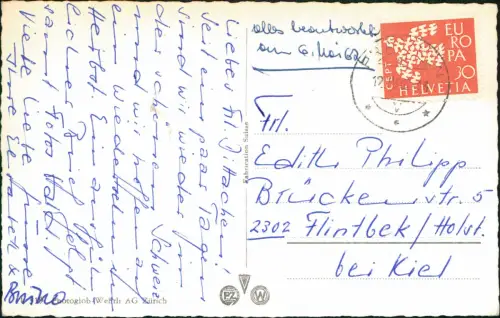 alles beantwortet
am 6. Mai 62
CEPT
EUROPA
30
HELVETIA
Liebes Frl. Dittachen!
Seit ein paar Tagen
sind wir wieder in
der schönen Schweiz
und wir hoffen auf
ein Wiedersehen im
Herbst. Ein ausführ-
licher Brief folgt
samt Fotos
Viele liebe Grüsse
Ihre Elisabeth &
Bruno
Frl.
Edith Philipp
Brückenstr. 5
2302 Flintbek/Holst.
bei Kiel
Fabrication Suisse
Photoglob-Wehrli AG Zürich
PZ W